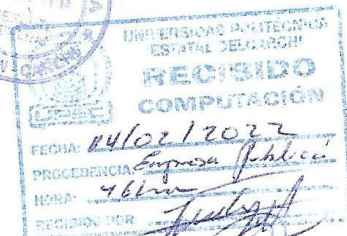 UNIVERSIDAD POLITÉCNICA
ESTATAL DEL CARCHI
RECIBIDO
COMPUTACIÓN
FECHA: 04/02/2022
PROCEDENCIA: Empresa Pública
HORA:
RECIBIDO POR
CARCHI